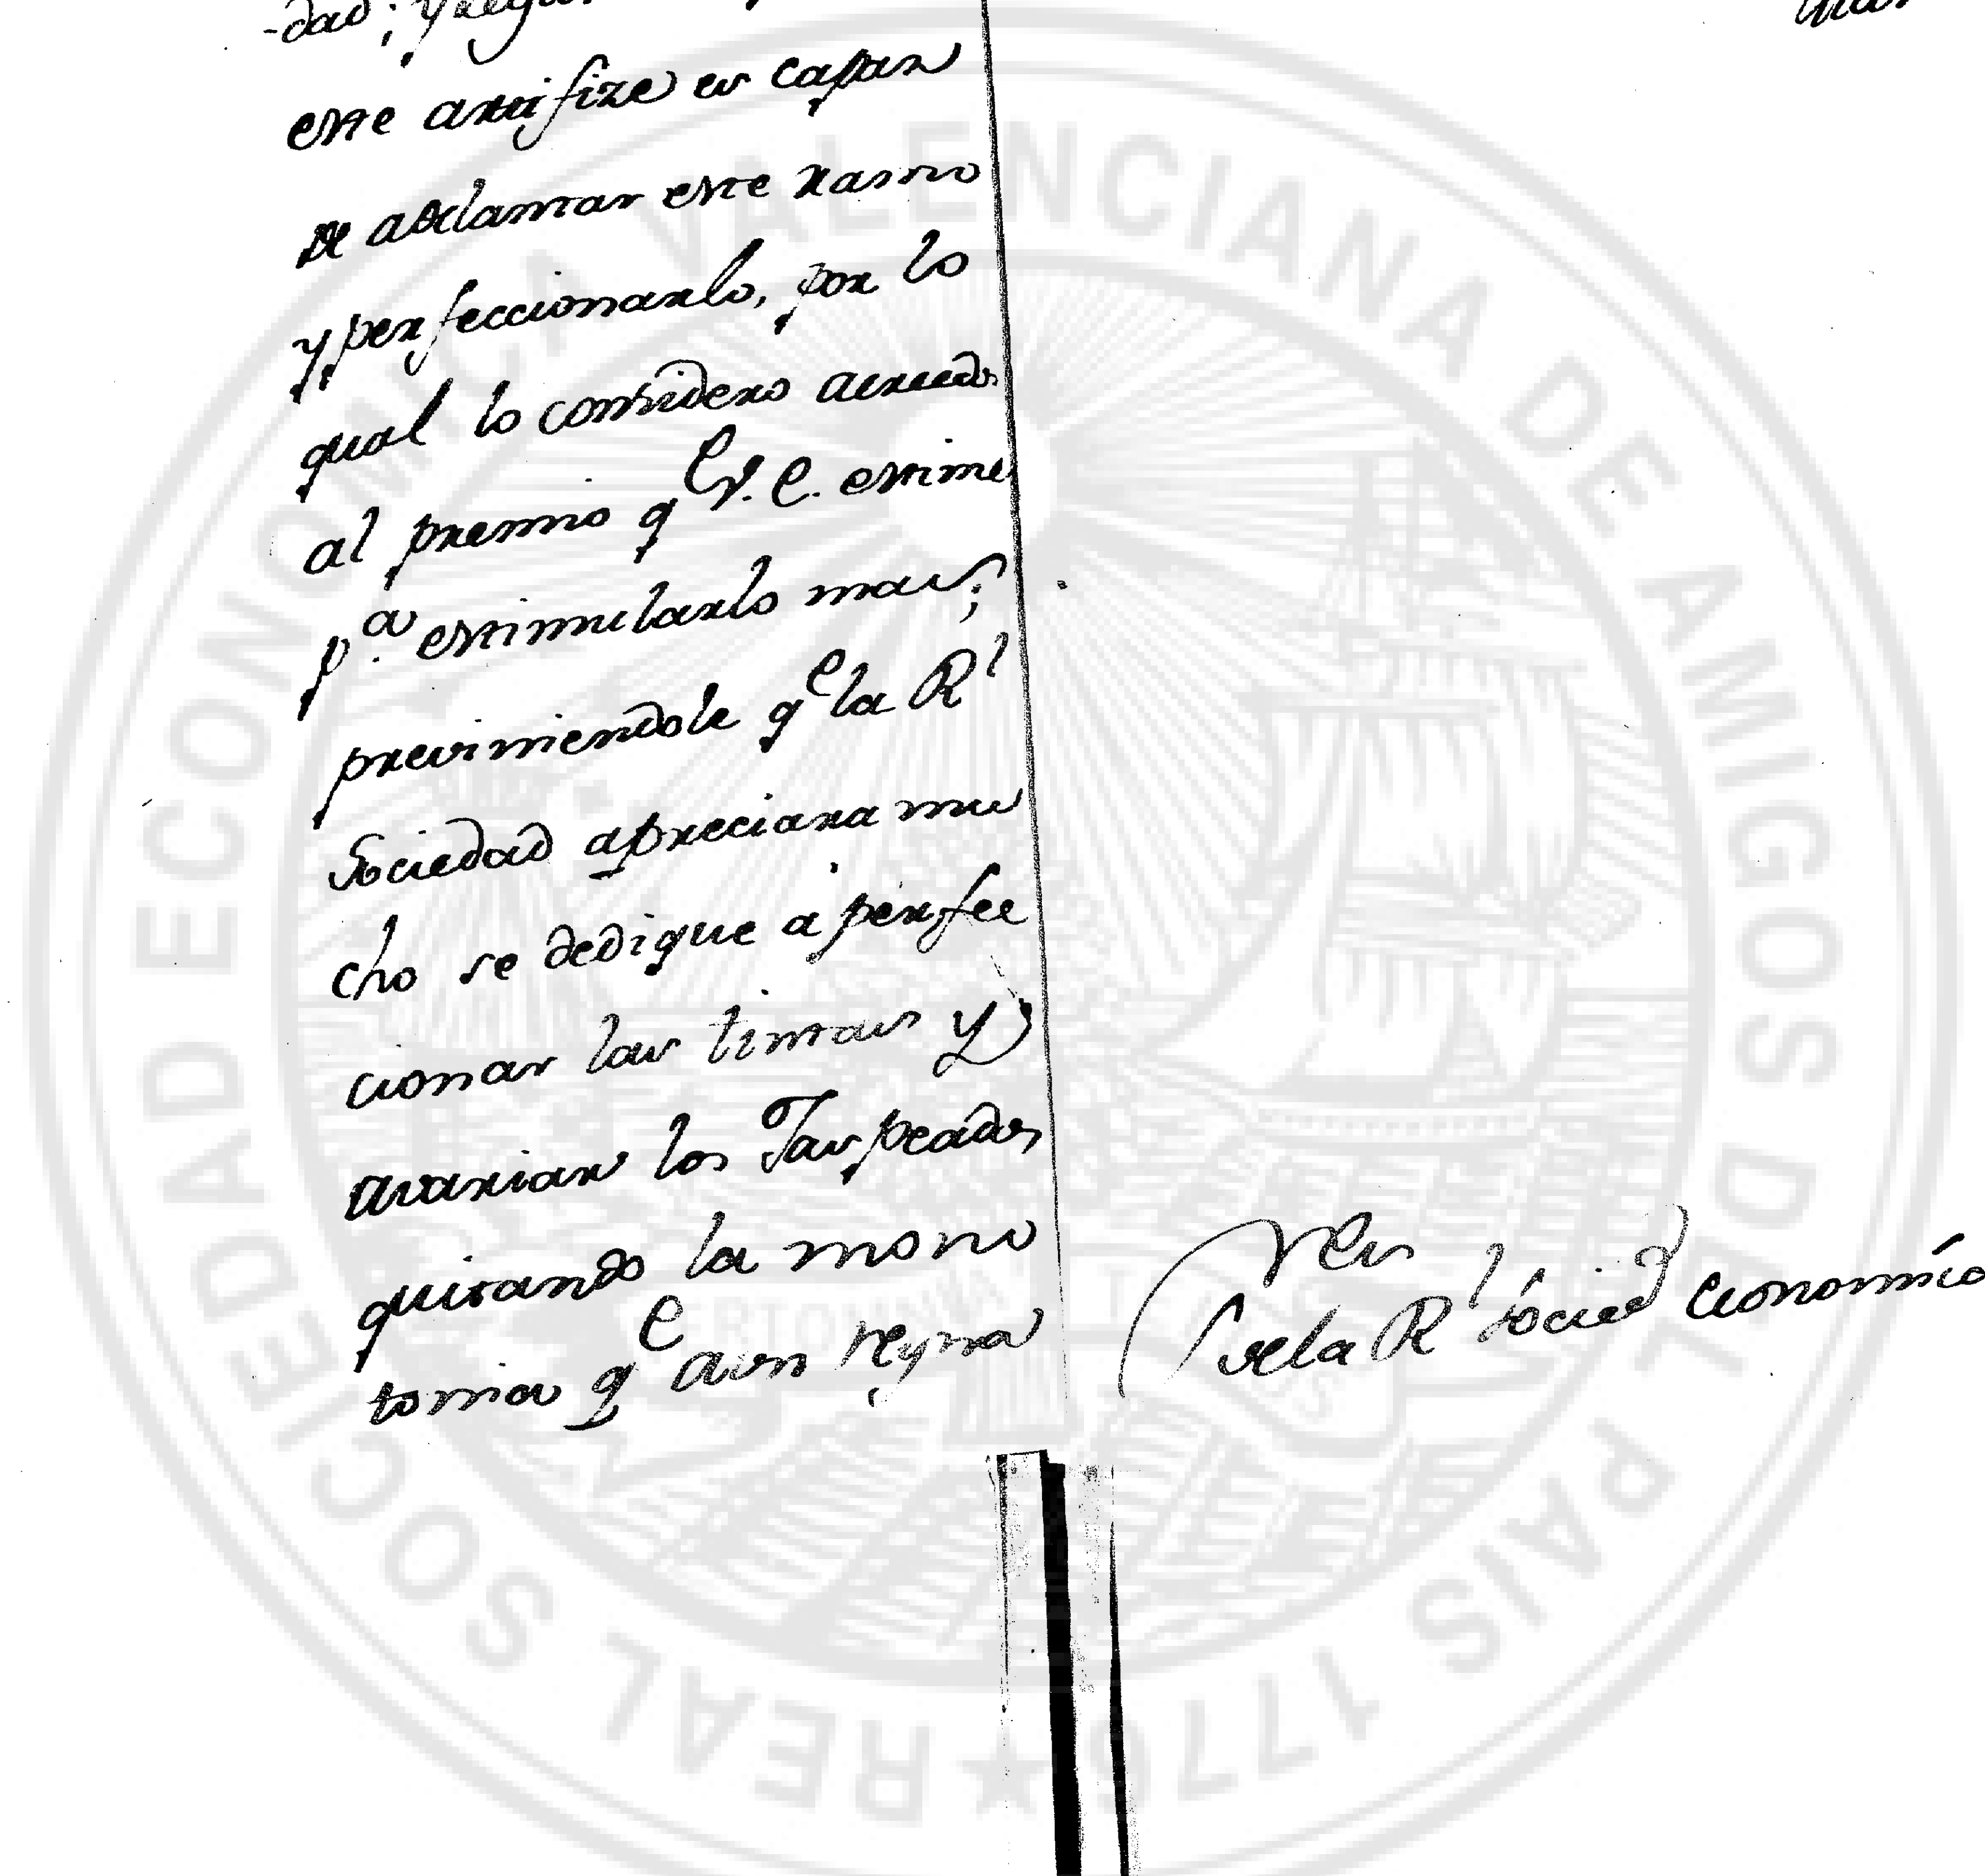 -dad; y
este artifize es capaz
de adelantar este ramo
y perfeccionarlo, por lo
qual lo considero acreedor
al premio qe V. E. estime
pa. estimularlo mas;
previniendole qe la Rl
Sociedad apreciara mu
cho se dedique a perfec
cionar las tintas y
avariar los Jaspeados
quitando la mono
tonia qe aun reyna
de la Rl Socied Economic
REAL SOCIEDAD ECONOMICA VALENCIANA DE AMIGOS DEL PAIS 1776